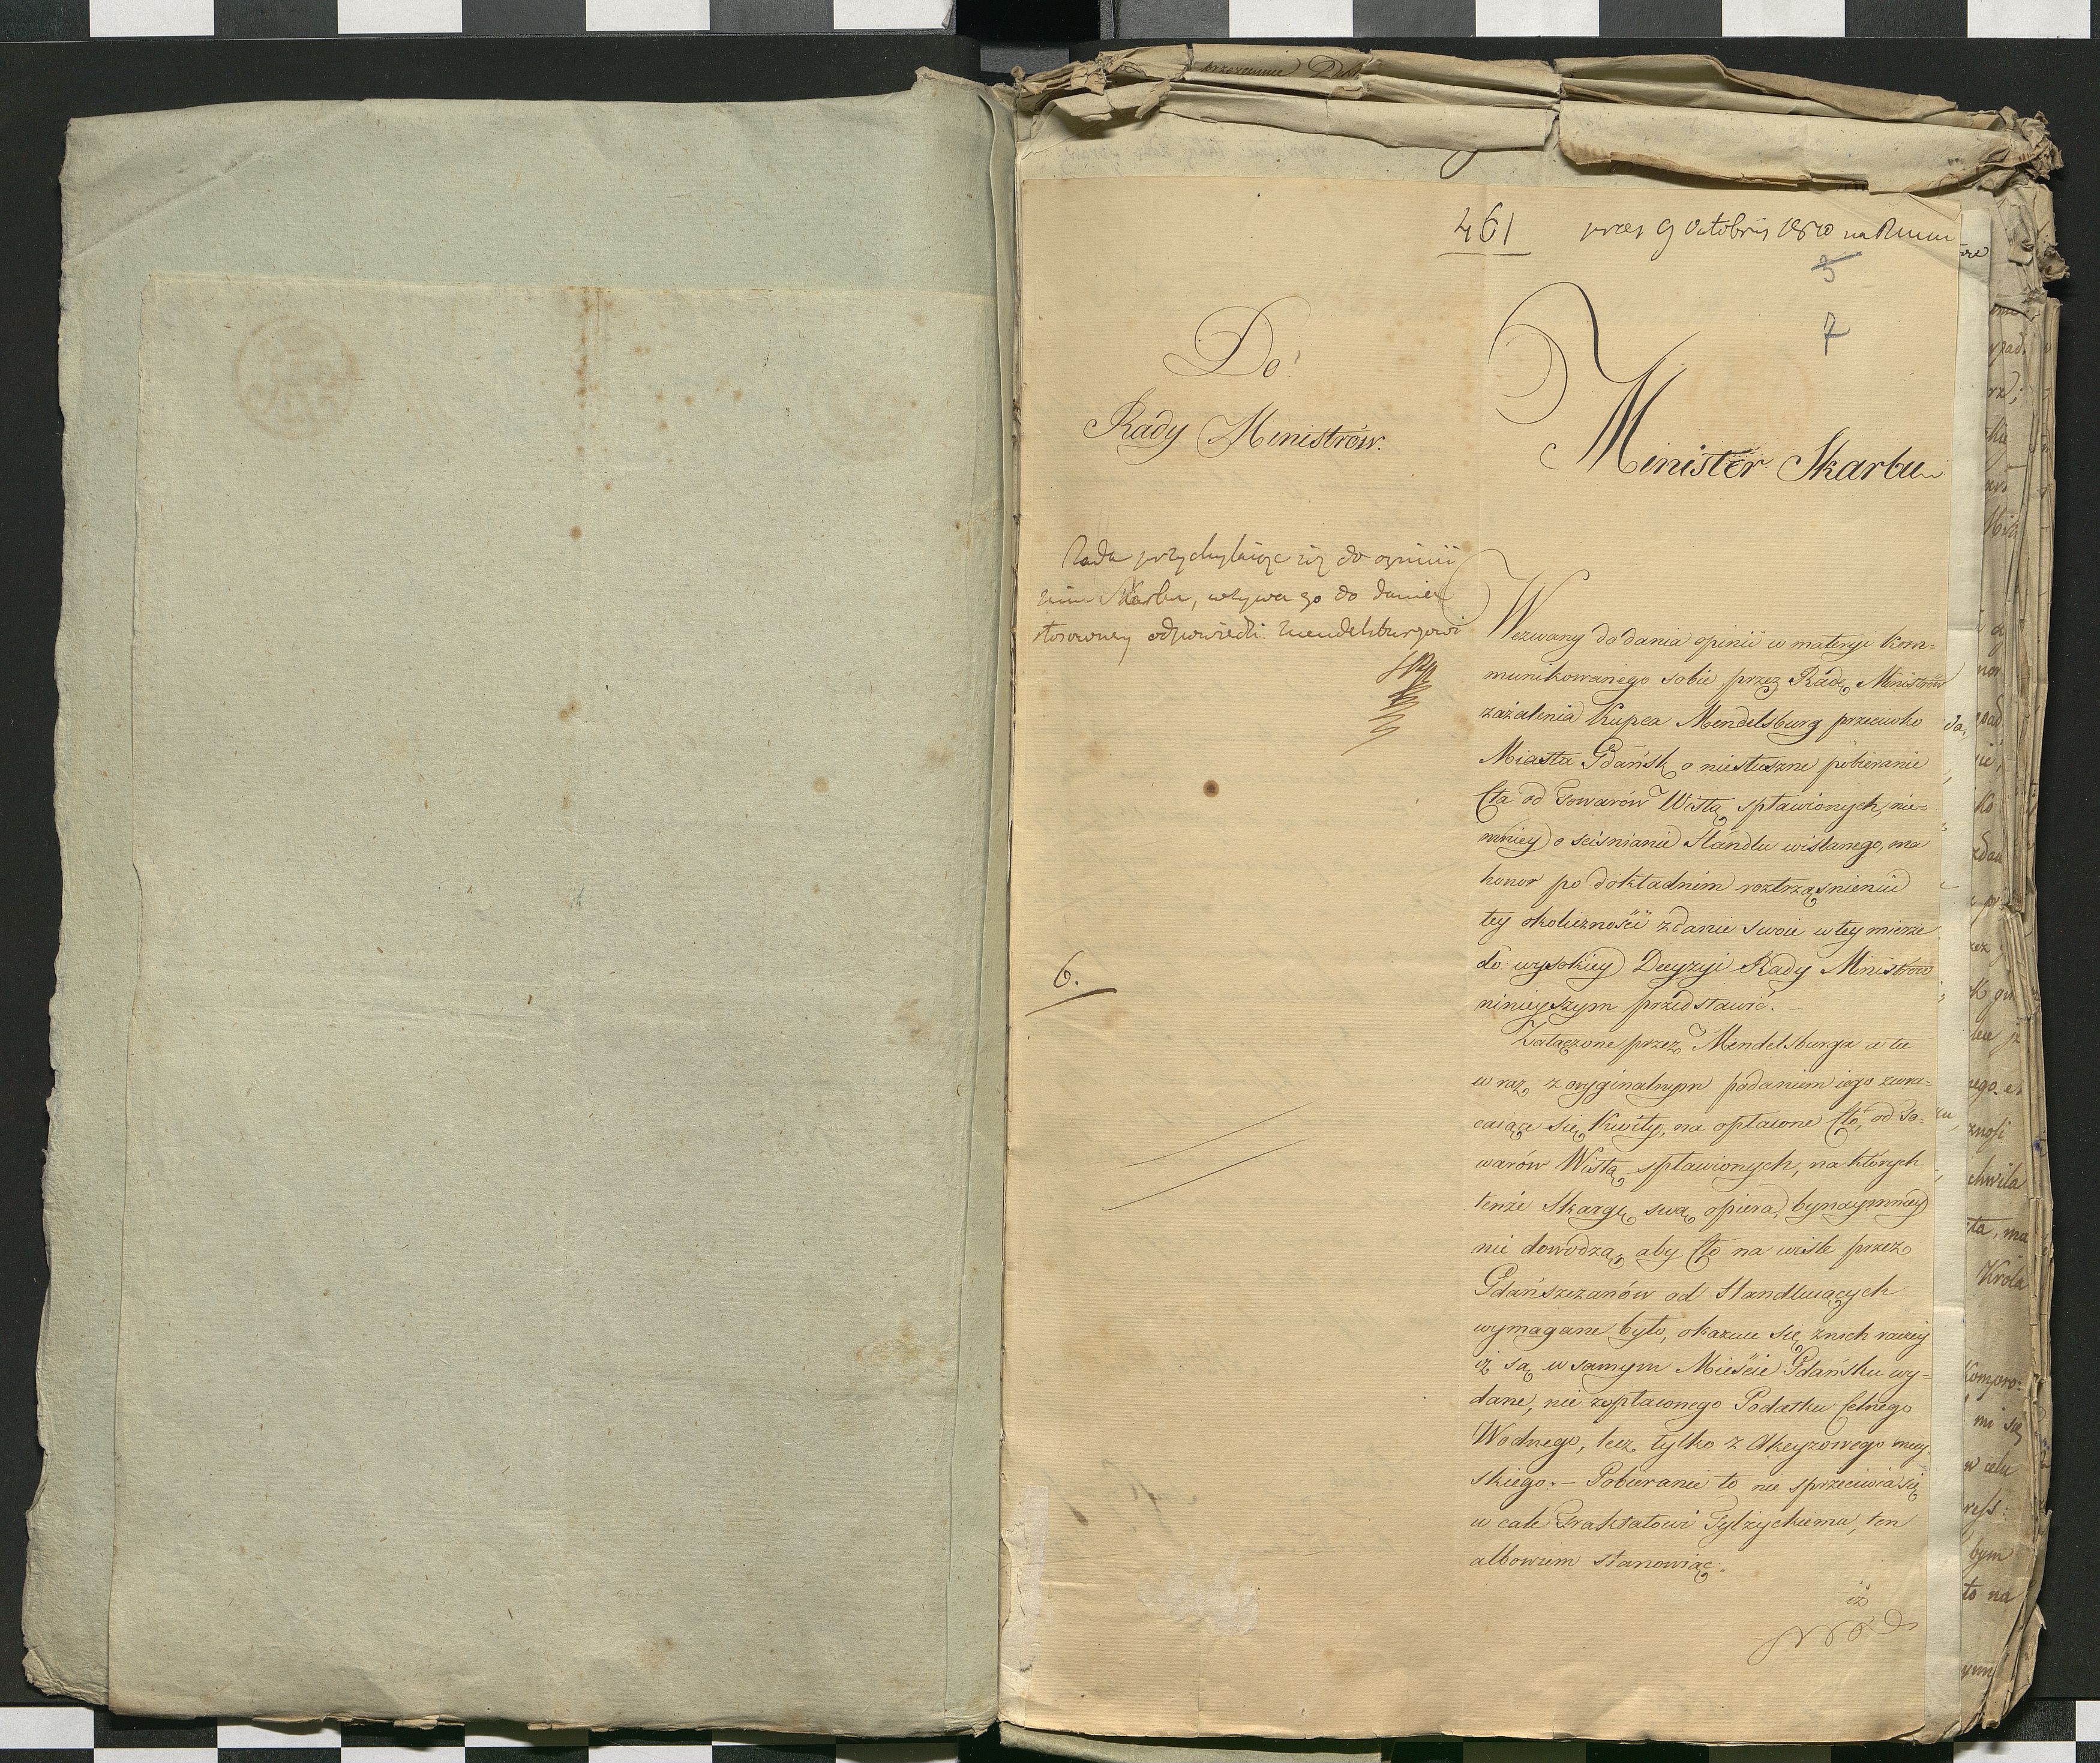 461
9 Octobris 1810 na
3
7
Do
Rady Ministrów.
Minister Skarbu
Rada przychylaiąc się do opinii
Skarbu, wzywa go do dania
stosowney odpowiedzi Mendelsburgowi
6.
Wezwany do dania opinii w materyi kom=
munikowanego sobie przez Radę Ministrów
zażalenia Kupca Mendelsburg przeciwko
Miasta Gdańsk o niesłuszne pobieranie
Cła od Towarów Wisłą spławionych, nie=
mniey o ścisnianie Handlu wislanego, ma
honor po dokładnim roztrząsnieniu
tey okoliczności zdanie swoie w tey mierze
do wysokiey Decyzyi Rady Ministrów
ninieyszym przedstawić. —
Załączone przez Mendelsburga a tu
w raz z oryginalnym podaniem iego zwra=
caiące się Kwity, na opłacone Cło, od To=
warów Wisłą spławionych, na których
tenże Skargę swą opiera, bynaymniey
nie dowodzą, aby Cło na wisle przez
Gdańszczanów od Handluiących
wymagane było, okazuie się z nich raczey
iż są w samym Mieście Gdańsku wy=
dane, nie z opłaconego Podatku Celnego
Wodnego, lecz tylko z Akcyzowego miey=
skiego. — Pobieranie to nie sprzeciwia się
w cale Traktatowi Tylżyckiemu, ten
albowiem stanowiąc.
iż